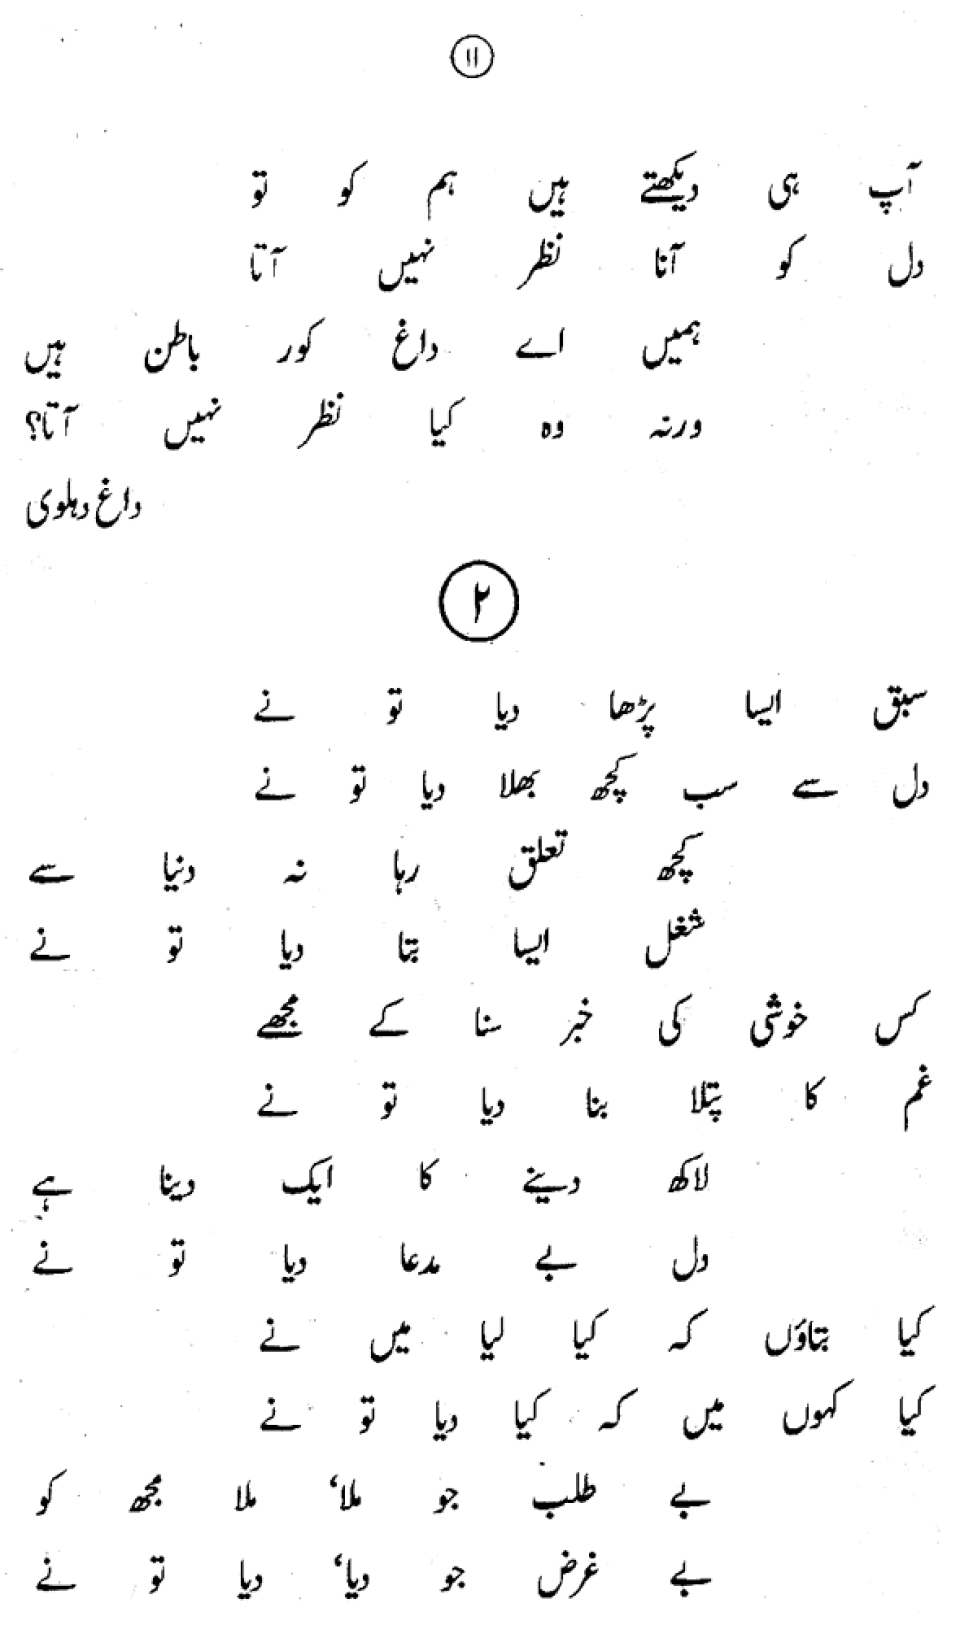 ۱۱
آپ ہی دیکھتے ہیں ہم کو تو
دل کو آنا نظر نہیں آتا
ہمیں اے داغ کور باطن ہیں
ورنہ وہ کیا نظر نہیں آتا؟
داغ دہلوی
۲
سبق ایسا پڑھا دیا تو نے
دل سے سب کچھ بھلا دیا تو نے
کچھ تعلق رہا نہ دنیا سے
شغل ایسا بتا دیا تو نے
کس خوشی کی خبر سنا کے مجھے
غم کا پتلا بنا دیا تو نے
لاکھ دینے کا ایک دینا ہے
دل بے مدعا دیا تو نے
کیا بتاؤں کہ کیا لیا میں نے
کیا کہوں میں کہ کیا دیا تو نے
بے طلب جو ملا، ملا مجھ کو
بے غرض جو دیا، دیا تو نے